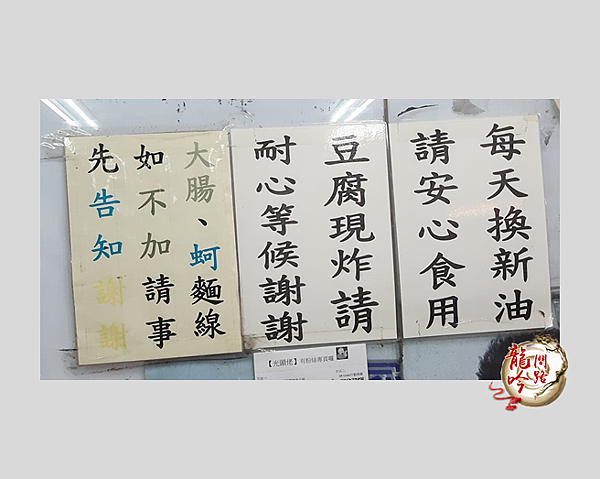 每天換新油
請安心食用
豆腐現炸請
耐心等候謝謝
大腸、蚵麵線
如不加請事
先告知謝謝
【光頭佬】有粉絲專頁囉
龍吟
問路